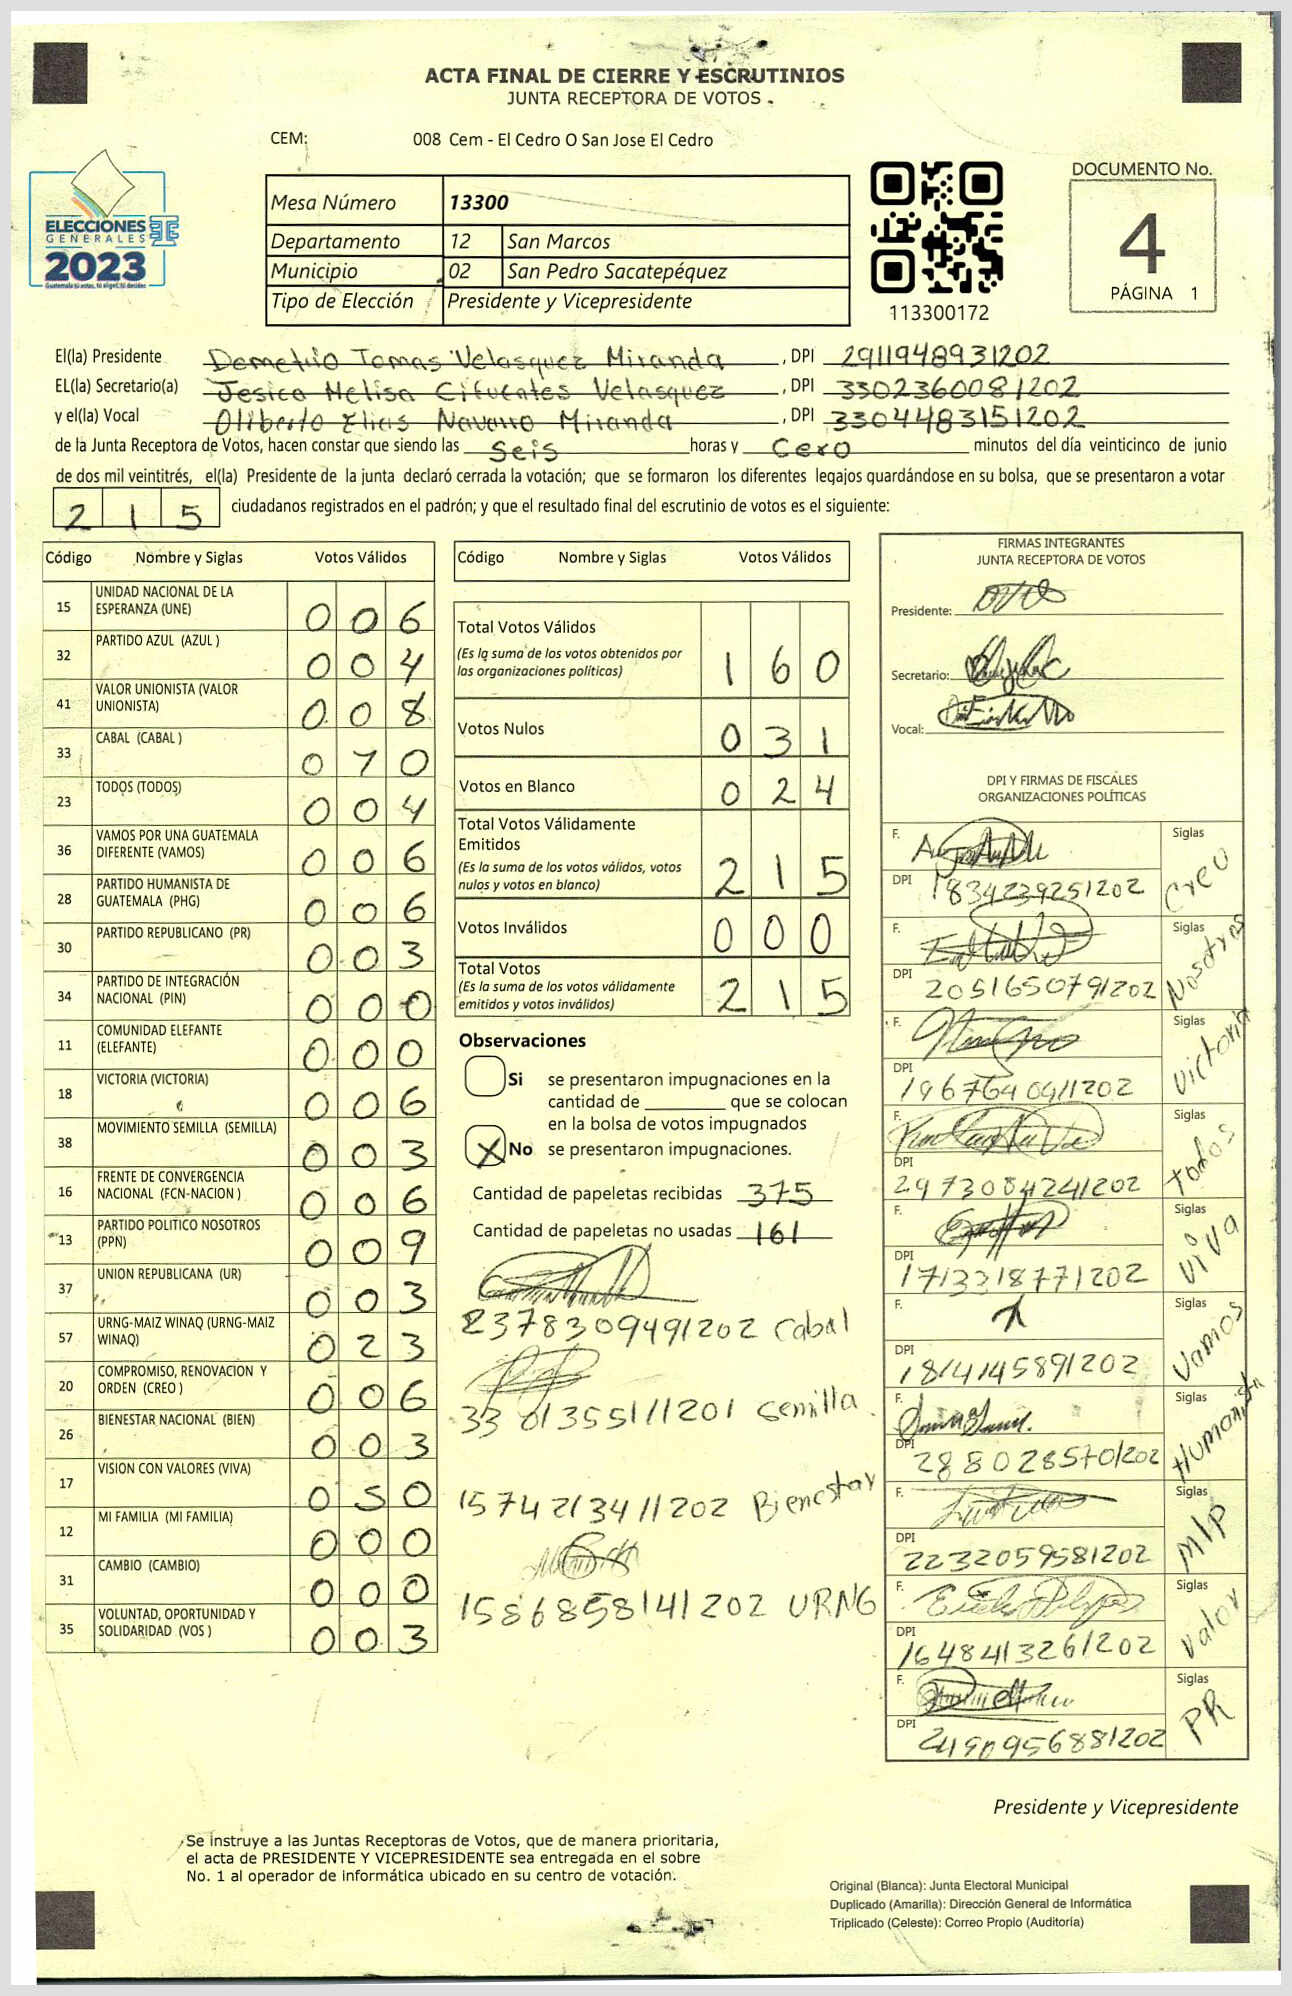 ACTA FINAL DE CIERRE Y ESCRUTINIOS
JUNTA RECEPTORA DE VOTOS
CEM: 008 Cem - El Cedro O San Jose El Cedro
ELECCIONES
GENERALES
2023
Mesa Número 13300
Departamento 12 San Marcos
Municipio 02 San Pedro Sacatepéquez
Tipo de Elección Presidente y Vicepresidente
113300172
DOCUMENTO No.
4
PÁGINA 1
El(la) Presidente Demetrio Tomas Velasquez Miranda, DPI 2911948931202
EL(la) Secretario(a) Jesica Melisa Cifuentes Velasquez, DPI 3302360081202
y el(la) Vocal Oliberto Elias Navarro Miranda, DPI 3304483151202
de la Junta Receptora de Votos, hacen constar que siendo las Seis horas y Cero minutos del día veinticinco de junio
de dos mil veintitrés, el(la) Presidente de la junta declaró cerrada la votación; que se formaron los diferentes legajos guardándose en su bolsa, que se presentaron a votar
215 ciudadanos registrados en el padrón; y que el resultado final del escrutinio de votos es el siguiente:
Código Nombre y Siglas Votos Válidos
15 UNIDAD NACIONAL DE LA ESPERANZA (UNE) 006
32 PARTIDO AZUL (AZUL) 004
41 VALOR UNIONISTA (VALOR UNIONISTA) 008
33 CABAL (CABAL) 070
23 TODOS (TODOS) 004
36 VAMOS POR UNA GUATEMALA DIFERENTE (VAMOS) 006
28 PARTIDO HUMANISTA DE GUATEMALA (PHG) 006
30 PARTIDO REPUBLICANO (PR) 003
34 PARTIDO DE INTEGRACIÓN NACIONAL (PIN) 000
11 COMUNIDAD ELEFANTE (ELEFANTE) 000
18 VICTORIA (VICTORIA) 006
38 MOVIMIENTO SEMILLA (SEMILLA) 003
16 FRENTE DE CONVERGENCIA NACIONAL (FCN-NACION) 006
13 PARTIDO POLITICO NOSOTROS (PPN) 009
37 UNION REPUBLICANA (UR) 003
57 URNG-MAIZ WINAQ (URNG-MAIZ WINAQ) 023
20 COMPROMISO, RENOVACION Y ORDEN (CREO) 006
26 BIENESTAR NACIONAL (BIEN) 003
17 VISION CON VALORES (VIVA) 050
12 MI FAMILIA (MI FAMILIA) 000
31 CAMBIO (CAMBIO) 000
35 VOLUNTAD, OPORTUNIDAD Y SOLIDARIDAD (VOS) 003
Código Nombre y Siglas Votos Válidos
Total Votos Válidos 160
(Es la suma de los votos obtenidos por
las organizaciones políticas)
Votos Nulos 031
Votos en Blanco 024
Total Votos Válidamente
Emitidos 215
(Es la suma de los votos válidos, votos
nulos y votos en blanco)
Votos Inválidos 000
Total Votos 215
(Es la suma de los votos válidamente
emitidos y votos inválidos)
Observaciones
Si se presentaron impugnaciones en la
cantidad de ________ que se colocan
en la bolsa de votos impugnados
X No se presentaron impugnaciones.
Cantidad de papeletas recibidas 375
Cantidad de papeletas no usadas 161
2378309491202 Cabal
3301355111201 Semilla
1574213411202 Bienestar
1586858141202 URNG
FIRMAS INTEGRANTES
JUNTA RECEPTORA DE VOTOS
Presidente:
Secretario:
Vocal:
DPI Y FIRMAS DE FISCALES
ORGANIZACIONES POLÍTICAS
F. Siglas Creo
DPI 1834239251202
F. Siglas Nosotros
DPI 2051650791202
F. Siglas Victoria
DPI 1967640911202
F. Siglas todos
DPI 2973084241202
F. Siglas Viva
DPI 1713318771202
F. Siglas Vamos
DPI 1814145891202
F. Siglas Humanista
DPI 2880285701202
F. Siglas MlP
DPI 2232059581202
F. Siglas Valor
DPI 1648413261202
F. Siglas PR
DPI 2490956881202
Presidente y Vicepresidente
Se instruye a las Juntas Receptoras de Votos, que de manera prioritaria,
el acta de PRESIDENTE Y VICEPRESIDENTE sea entregada en el sobre
No. 1 al operador de informática ubicado en su centro de votación.
Original (Blanca): Junta Electoral Municipal
Duplicado (Amarilla): Dirección General de Informática
Triplicado (Celeste): Correo Propio (Auditoría)